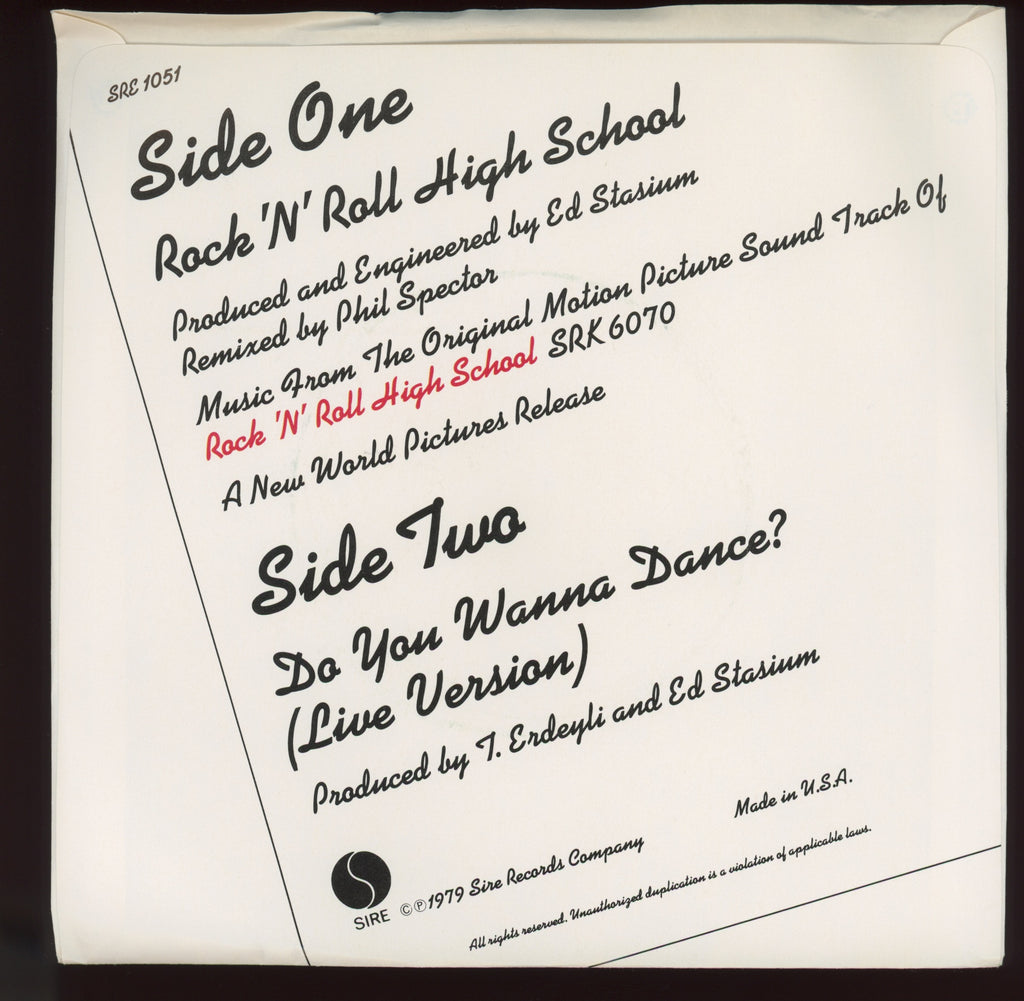 SRE 1051
Side One
Rock 'N' Roll High School
Produced and Engineered by Ed Stasium
Remixed by Phil Spector
Music From The Original Motion Picture Sound Track Of
Rock 'N' Roll High School SRK 6070
A New World Pictures Release
Side Two
Do You Wanna Dance?
(Live Version)
Produced by T. Erdeyli and Ed Stasium
Made in U.S.A.
SIRE ©℗1979 Sire Records Company
All rights reserved. Unauthorized duplication is a violation of applicable laws.